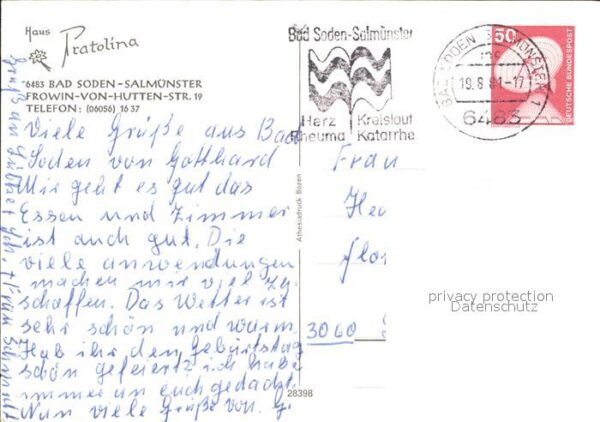 Haus
Pratolina
6483 BAD SODEN-SALMÜNSTER
FROWIN-VON-HUTTEN-STR. 19
TELEFON: (06056) 16 37
Viele Grüße aus Bad
Soden von Gotthard
Mir geht es gut das
Essen und Zimmer
ist auch gut. Die
viele anwendungen
machen mir viel zu
schaffen. Das Wetter ist
sehr schön und warm.
Hab ihr den Geburtstag
schön gefeiert ich habe
immer an euch gedacht.
Nun viele Grüße von G.
Gruß an
Frau
Bad Soden-Salmünster
Herz Kreislauf
Rheuma Katarrhe
BAD SODEN-SALMÜNSTER 1
19.8.81-17
6483
50
DEUTSCHE BUNDESPOST
Frau
He
Flor
3060
Athesiadruck Bozen
28398
privacy protection
Datenschutz